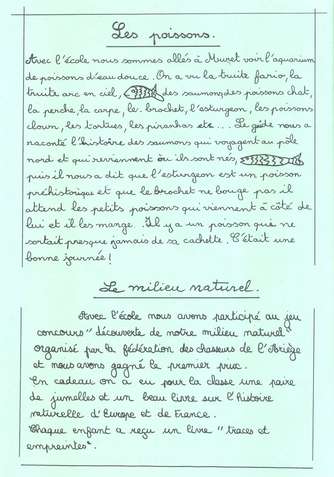 Les poissons.
Avec l'école nous sommes allés à Muret voir l'aquarium
de poissons d'eau douce. On a vu la truite fario, la
truite arc en ciel, des saumons, des poissons chat,
la perche, la carpe, le brochet, l'esturgeon, les poissons
clown, les tortues, les piranhas etc... Le guide nous a
raconté l'histoire des saumons qui voyagent au pôle
nord et qui reviennent où ils sont nés,
puis il nous a dit que l'esturgeon est un poisson
préhistorique et que le brochet ne bouge pas il
attend les petits poissons qui viennent à côté de
lui et il les mange. Il y a un poisson qui ne
sortait presque jamais de sa cachette. C'était une
bonne journée !
Le milieu naturel.
Avec l'école nous avons participé au jeu
concours "découverte de notre milieu naturel"
organisé par la fédération des chasseurs de l'Ariège
et nous avons gagné le premier prix.
En cadeau on a eu pour la classe une paire
de jumelles et un beau livre sur l'histoire
naturelle d'Europe et de France.
Chaque enfant a reçu un livre "traces et
empreintes".